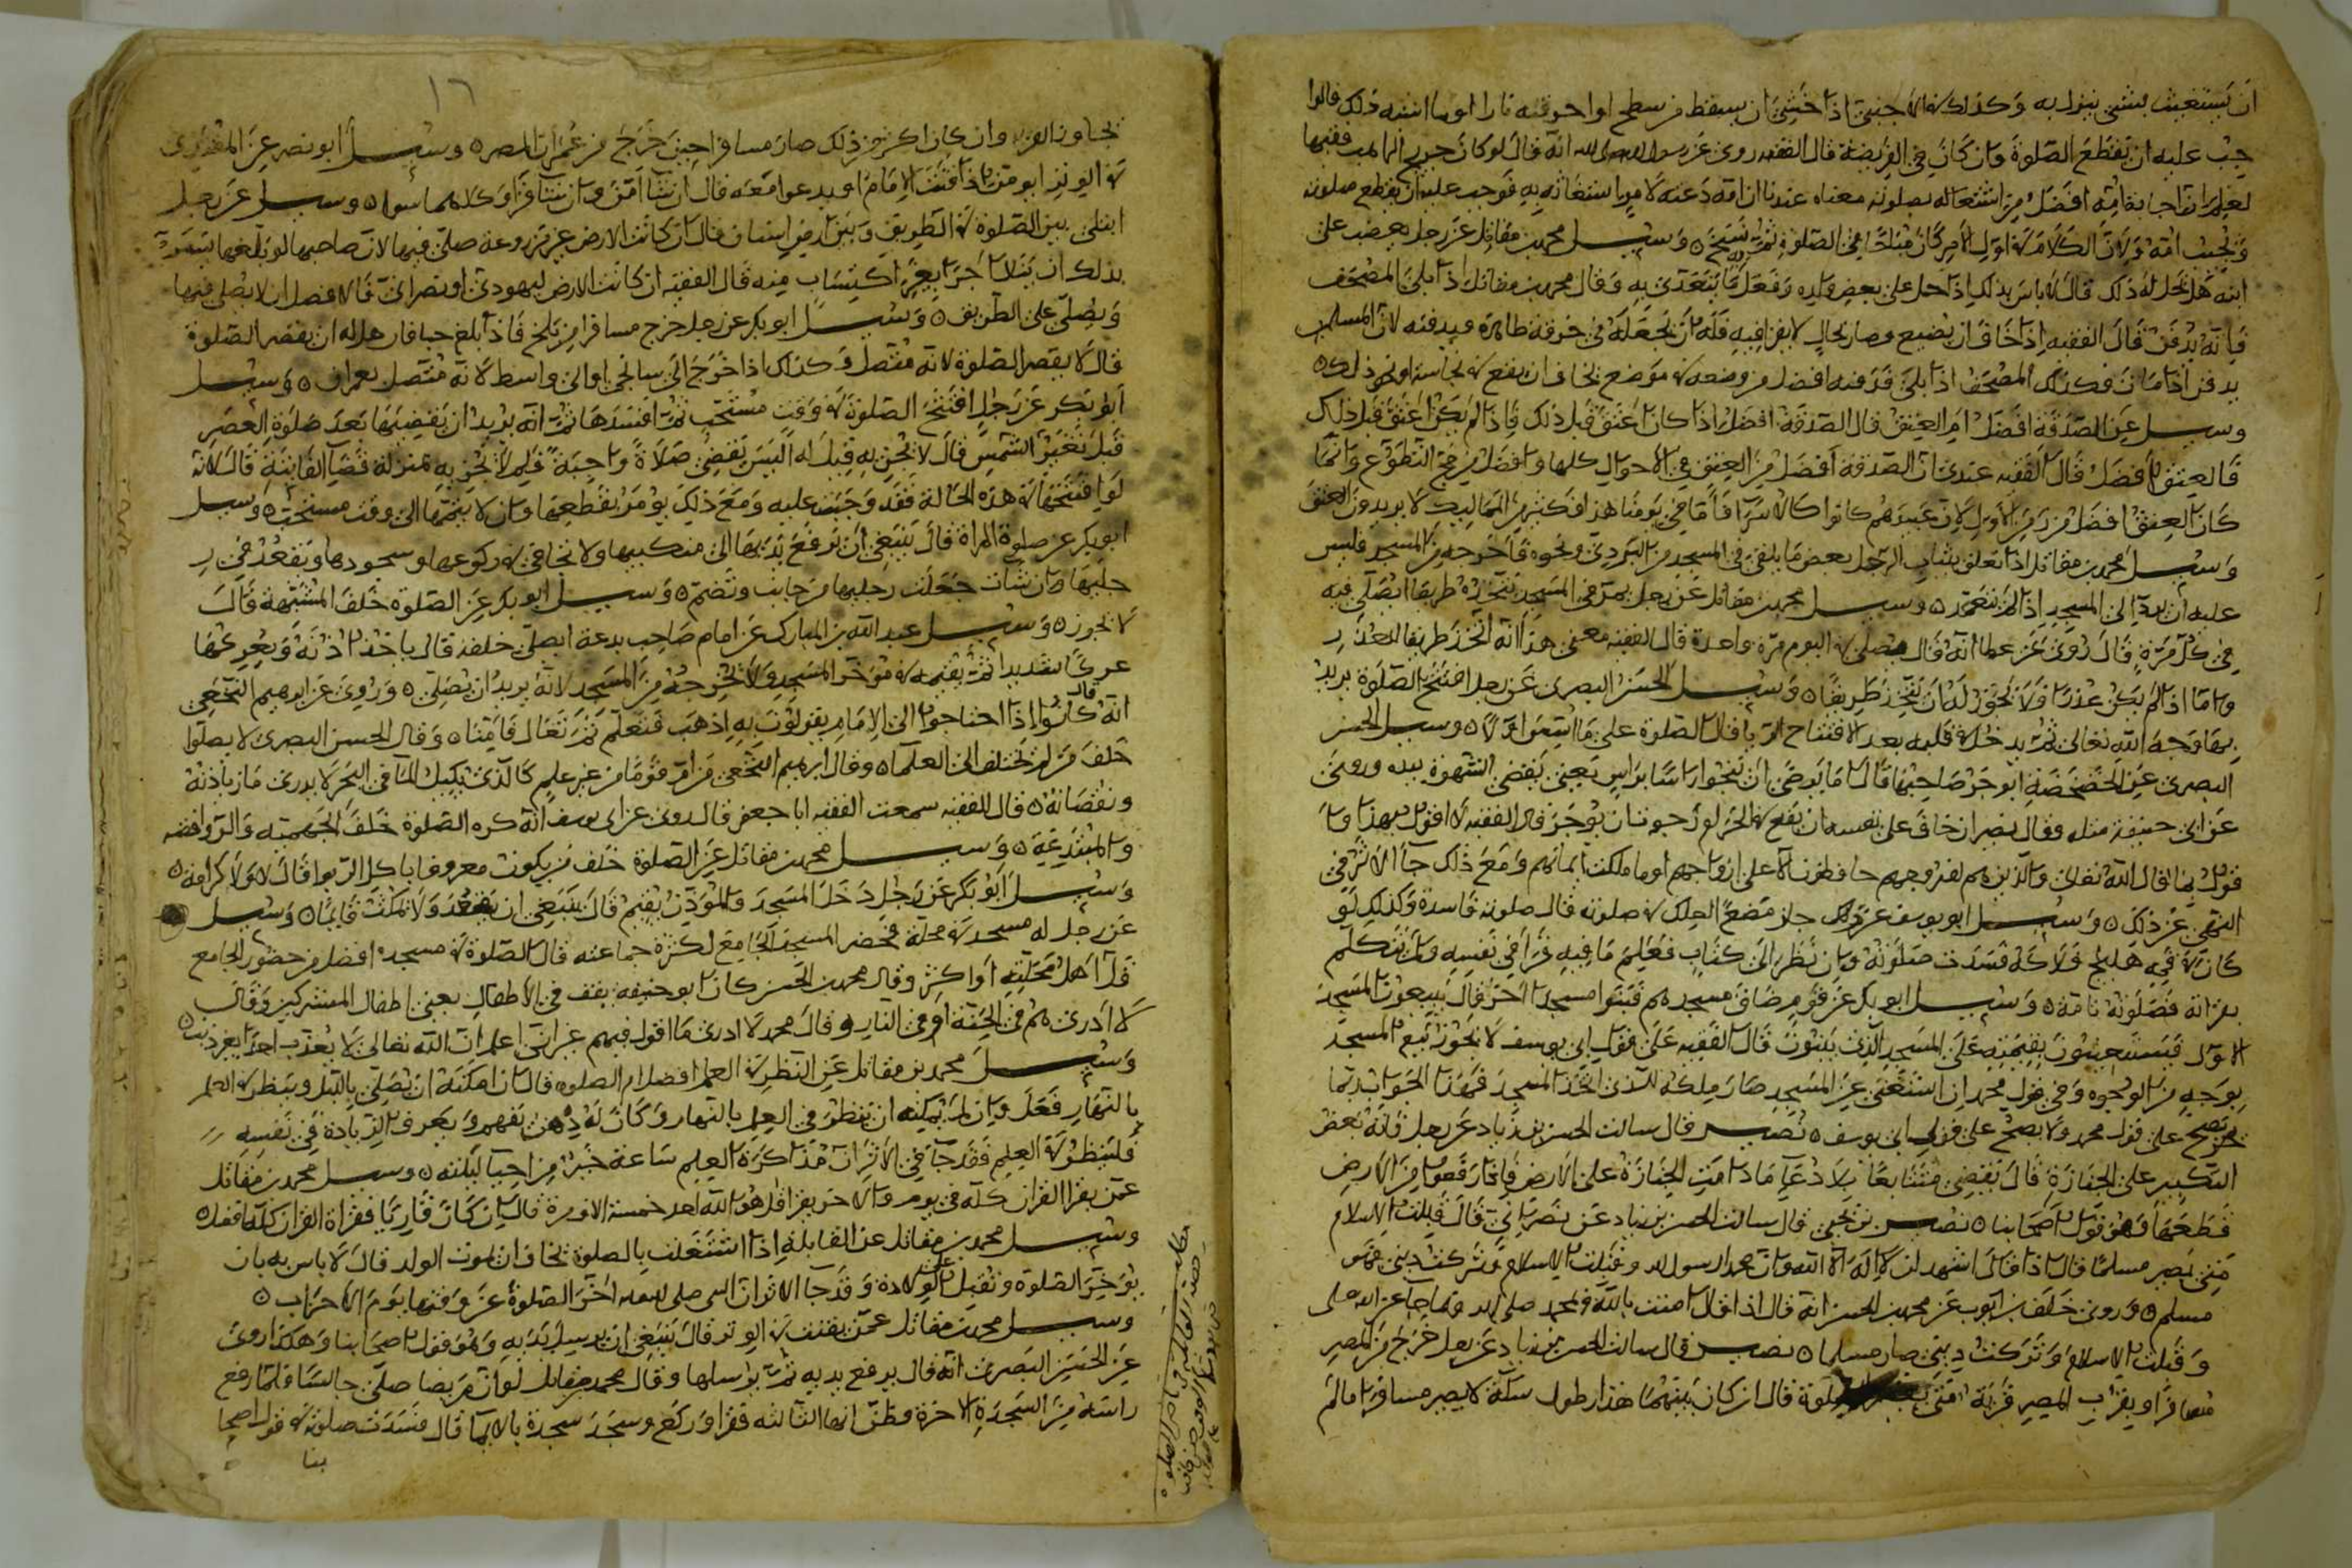 ان يستغيث بشيء ينزل به وكذلك في الاجنبي اذا خشي ان يسقط من سطح او احرقته نار او ما اشبه ذلك قالوا
عليه ان يقطع الصلوة وان كان في الفريضة قال الفقيه روى عن رسول الله انه قال لو كان جريج الراهب فقيها
لعلم ان اجابة امه افضل من اشتغاله بصلوته معناه عندنا ان امه دعته لامر استغاثه به فوجب عليه ان يقطع صلوته
ويجيب امه ولان الكلام في اول الامر كان مباحا في الصلوة ثم نسخ ٥ وسئل محمد بن مقاتل عن رجل يحرض على
ابنه هل يحل له ذلك قال لا باس بذلك اذا حل على بعض ولده وفعل ما يتعدى به وقال محمد بن مقاتل اذا بلي المصحف
فانه يدفن قال الفقيه اذا خاف ان يضيع وصار بحال لا يقرا فيه فله ان يجعله في خرقة طاهرة ويدفنه لان المسلم
يدفن اذا مات فكذلك المصحف اذا بلي فدفنه افضل من وضعه في موضع يخاف ان يقع في نجاسة او نحو ذلك ٥
وسئل عن الصدقة افضل ام العتق قال الصدقة افضل اذا كان اعتق قبل ذلك فاذا لم يكن اعتق قبل ذلك
فالعتق افضل قال الفقيه عندي ان الصدقة افضل من العتق في الاحوال كلها وافضل من حج التطوع وانما
كان العتق افضل في الاول لان عبيدهم كانوا كالاسرا فاما في يومنا هذا فكثير من المماليك لا يريدون العتق
وسئل محمد بن مقاتل اذا تعلق بثياب الرجل بعض ما يلقى في المسجد من البردي ونحوه فاخرجه من المسجد فليس
عليه ان يرده الى المسجد اذا لم يتعمد ٥ وسئل محمد بن مقاتل عن رجل يمر في المسجد يتخذه طريقا ايصلي فيه
في كل مرة قال روى عن عطا انه قال يصلي في اليوم مرة واحدة قال الفقيه معنى هذا انه اتخذ طريقا لعذر
واما اذا لم يكن عذر فلا يجوز له ان يتخذ طريقا ٥ وسئل الحسن البصري عن رجل افتتح الصلوة يريد
بها وجه الله تعالى ثم يدخل في قلبه بعد الافتتاح الريا قال الصلوة على ما اسس اولا ٥ وسئل الحسن
البصري عن الخضخضة ايؤجر صاحبها قال اما يرضى ان ينجو راسا براس يعني يقضي الشهوة بيده وروى
عن ابي حنيفة مثله وقال نصير ان خاف على نفسه ان يقع في الحرام ارجو ان يؤجر قال الفقيه لا اقول بهذا
اقول بما قال الله تعالى والذين هم لفروجهم حافظون الا على ازواجهم او ما ملكت ايمانهم ومع ذلك جا الاثر في
النهي عن ذلك ٥ وسئل ابو يوسف عن رجل مضغ العلك في صلوته قال صلوته فاسدة وكذلك لو
كان في فيه هليلج فلاكه فسدت صلوته وان نظر الى كتاب فعلم ما فيه قرا في نفسه ولم يتكلم
بقراته فصلوته تامة ٥ وسئل ابو بكر عن قوم ضاق مسجدهم فبنوا مسجدا اخر قال يبيعون المسجد
الاول فيستعينون بقيمته على المسجد الذي يبنون قال الفقيه على قول ابي يوسف لا يجوز بيع المسجد
بوجه من الوجوه وفي قول محمد ان استغنى عن المسجد صار ملكه للذي اتخذ المسجد فهذا الجواب ربما
يصح على قول محمد ولا يصح على قول ابي يوسف ٥ نصير قال سالت الحسن بن زياد عن رجل فاته بعض
التكبير على الجنازة قال يقضي متتابعا بلا دعا ما دامت الجنازة على الارض فاذا رفعوا من الارض
قطعها وهو قول اصحابنا ٥ نصير بن يحيى قال سالت الحسن بن زياد عن نصراني قال قبلت الاسلام
متى يصير مسلما قال اذا قال اشهد ان لا اله الا الله وان محمدا رسول الله وقبلت الاسلام وتركت ديني فهو
مسلم ٥ وروى خلف بن ايوب عن محمد بن الحسن انه قال اذا قال امنت بالله وبمحمد صلى الله وبما جا عن الله
وقبلت الاسلام وتركت ديني صار مسلما ٥ نصير قال سالت الحسن بن زياد عن رجل خرج من المصر
مسافرا وبقرب المصر قرية متى يقصر الصلوة قال ان كان بينهما هذا بطول سكة لا يصير مسافرا ما لم
١٦
يجاوز القرية وان كان اكثر من ذلك صار مسافرا حين خرج من عمران المصر ٥ وسئل ابو نصر عن المقتدي
في الوتر ابو من اذا قنت الامام او يدعوا معه قال ان شا امن وان شا قرا وكلاهما سوا ٥ وسئل عن رجل
ابتلي بين الصلوة في الطريق وبين ارض انسان قال ان كانت الارض غير مزروعة صلى فيها لان صاحبها لو بلغه يسره
بذلك ان ينال اجرا بغير اكتساب منه قال الفقيه ان كانت الارض ليهودي او نصراني فالافضل ان لا يصلي فيها
ويصلي على الطريق ٥ وسئل ابو بكر عن رجل خرج مسافرا من بلخ فاذا بلغ هل له ان يقصر الصلوة
قال لا يقصر الصلوة لانه متصل وكذلك اذا خرج الى او الى واسط لانه متصل بعمران ٥ وسئل
ابو بكر عن رجل افتتح الصلوة في وقت مستحب ثم افسدها ثم انه يريد ان يقضيها بعد صلوة العصر
قبل تغير الشمس قال لا يجزيه قيل له اليس يقضي صلاة واجبة فلم لا يجزيه بمنزلة قضا الفايتة قال لانه
لو افتتحها في هذه الحالة فقد وجبت عليه ومع ذلك يؤمر بقطعها وان لا يتمها الى وقت مستحب ٥ وسئل
ابو بكر عن صلوة المراة قال ينبغي ان ترفع يديها الى منكبيها ولا تجافي في ركوعها وسجودها وتقعد في
رجليها وان شات جعلت رجليها من جانب وتضم ٥ وسئل ابو بكر عن الصلوة خلف المشبهة قال
لا تجوز ٥ وسئل عبد الله بن المبارك عن امام صاحب بدعة ايصلى خلفه قال ياخذ اذنه ويعركها
عركا شديدا ثم يقيمه في مؤخر المسجد ولا يخرجه من المسجد لانه يريد ان يصلي ٥ وروى عن ابرهيم النخعي
انه قال كانوا اذا احتاجوا الى الامام يقولون به اذهب فتعلم ثم تعال فامنا ٥ وقال الحسن البصري لا يصلوا
خلف من لم يختلف الى العلما ٥ وقال ابرهيم النخعي من ام قوما من غير علم كالذي يكيل الما في البحر لا يدري ما زيادته
ونقصانه ٥ قال الفقيه سمعت الفقيه ابا جعفر قال روى عن ابي يوسف انه كره الصلوة خلف الجهمية والروافض
والمبتدعة ٥ وسئل محمد بن مقاتل عن الصلوة خلف من يكون معروفا باكل الربوا قال لا ولا كرامة ٥
وسئل ابو بكر عن رجل دخل المسجد والمؤذن يقيم قال ينبغي ان يقعد ولا يمكث قايما ٥ وسئل
عن رجل له مسجد في محلة فحضر المسجد الجامع لكثرة جماعته قال الصلوة في مسجده افضل من حضور الجامع
قل اهل محلته او اكثر وقال محمد بن الحسن كان ابو حنيفه يقف في الاطفال يعني اطفال المشركين وقال
لا ادري هم في الجنة او في النار وقال محمد لا ادري ما اقول فيهم غير اني اعلم ان الله تعالى لا يعذب احدا بغير ذنب ٥
وسئل محمد بن مقاتل عن النظر في العلم افضل ام الصلوة قال ان امكنه ان يصلي بالليل وينظر في العلم
بالنهار فعل وان لم يمكنه ان ينظر في العلم بالنهار وكان له ذهن يفهم ويعرف الزيادة في نفسه
فلينظر في العلم فقد جا في الاثر ان مذاكرة العلم ساعة خير من احيا ليلته ٥ وسئل محمد بن مقاتل
عمن يقرا القران كله في يوم والاخر يقرا قل هو الله احد خمسة الاف مرة قال ان كان قاريا فقراة القران كله افضل ٥
وسئل محمد بن مقاتل عن القابلة اذا اشتغلت بالصلوة تخاف ان يموت الولد قال لا باس به بان
يؤخر الصلوة وتقبل على الولادة وقد جا الاثر ان النبي صلى الله عليه اخر الصلوة عن وقتها يوم الاحزاب ٥
وسئل محمد بن مقاتل عمن يقنت في الوتر قال ينبغي ان يرسل يديه وهو قول اصحابنا وهكذا روى
عن الحسن البصري انه قال يرفع يديه ثم يرسلها وقال محمد بن مقاتل لو ان مريضا صلى جالسا فلما رفع
راسه من السجدة الاخرة وظن انها الثالثه فقرا وركع وسجد سجدة بالايما قال فسدت صلوته في قول اصحا
بنا